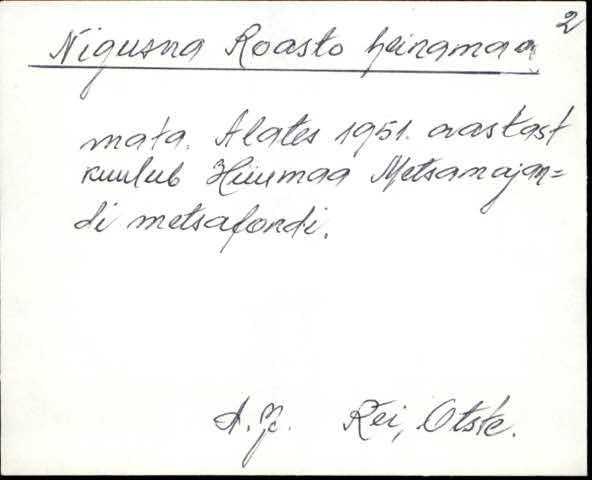 2
Nigusna Roasto heinamaa
mata. Alates 1951. aastast
kuulub Hiiumaa Metsamajan=
di metsafondi.
A.Y. Rei, Otste.